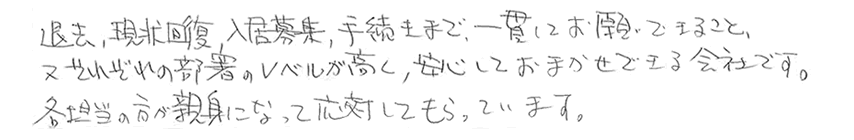 退去,現状回復,入居募集,手続きまで,一貫してお願いできること、
又それぞれの部署のレベルが高く,安心しておまかせできる会社です。
各担当の方が親身になって応対してもらっています。